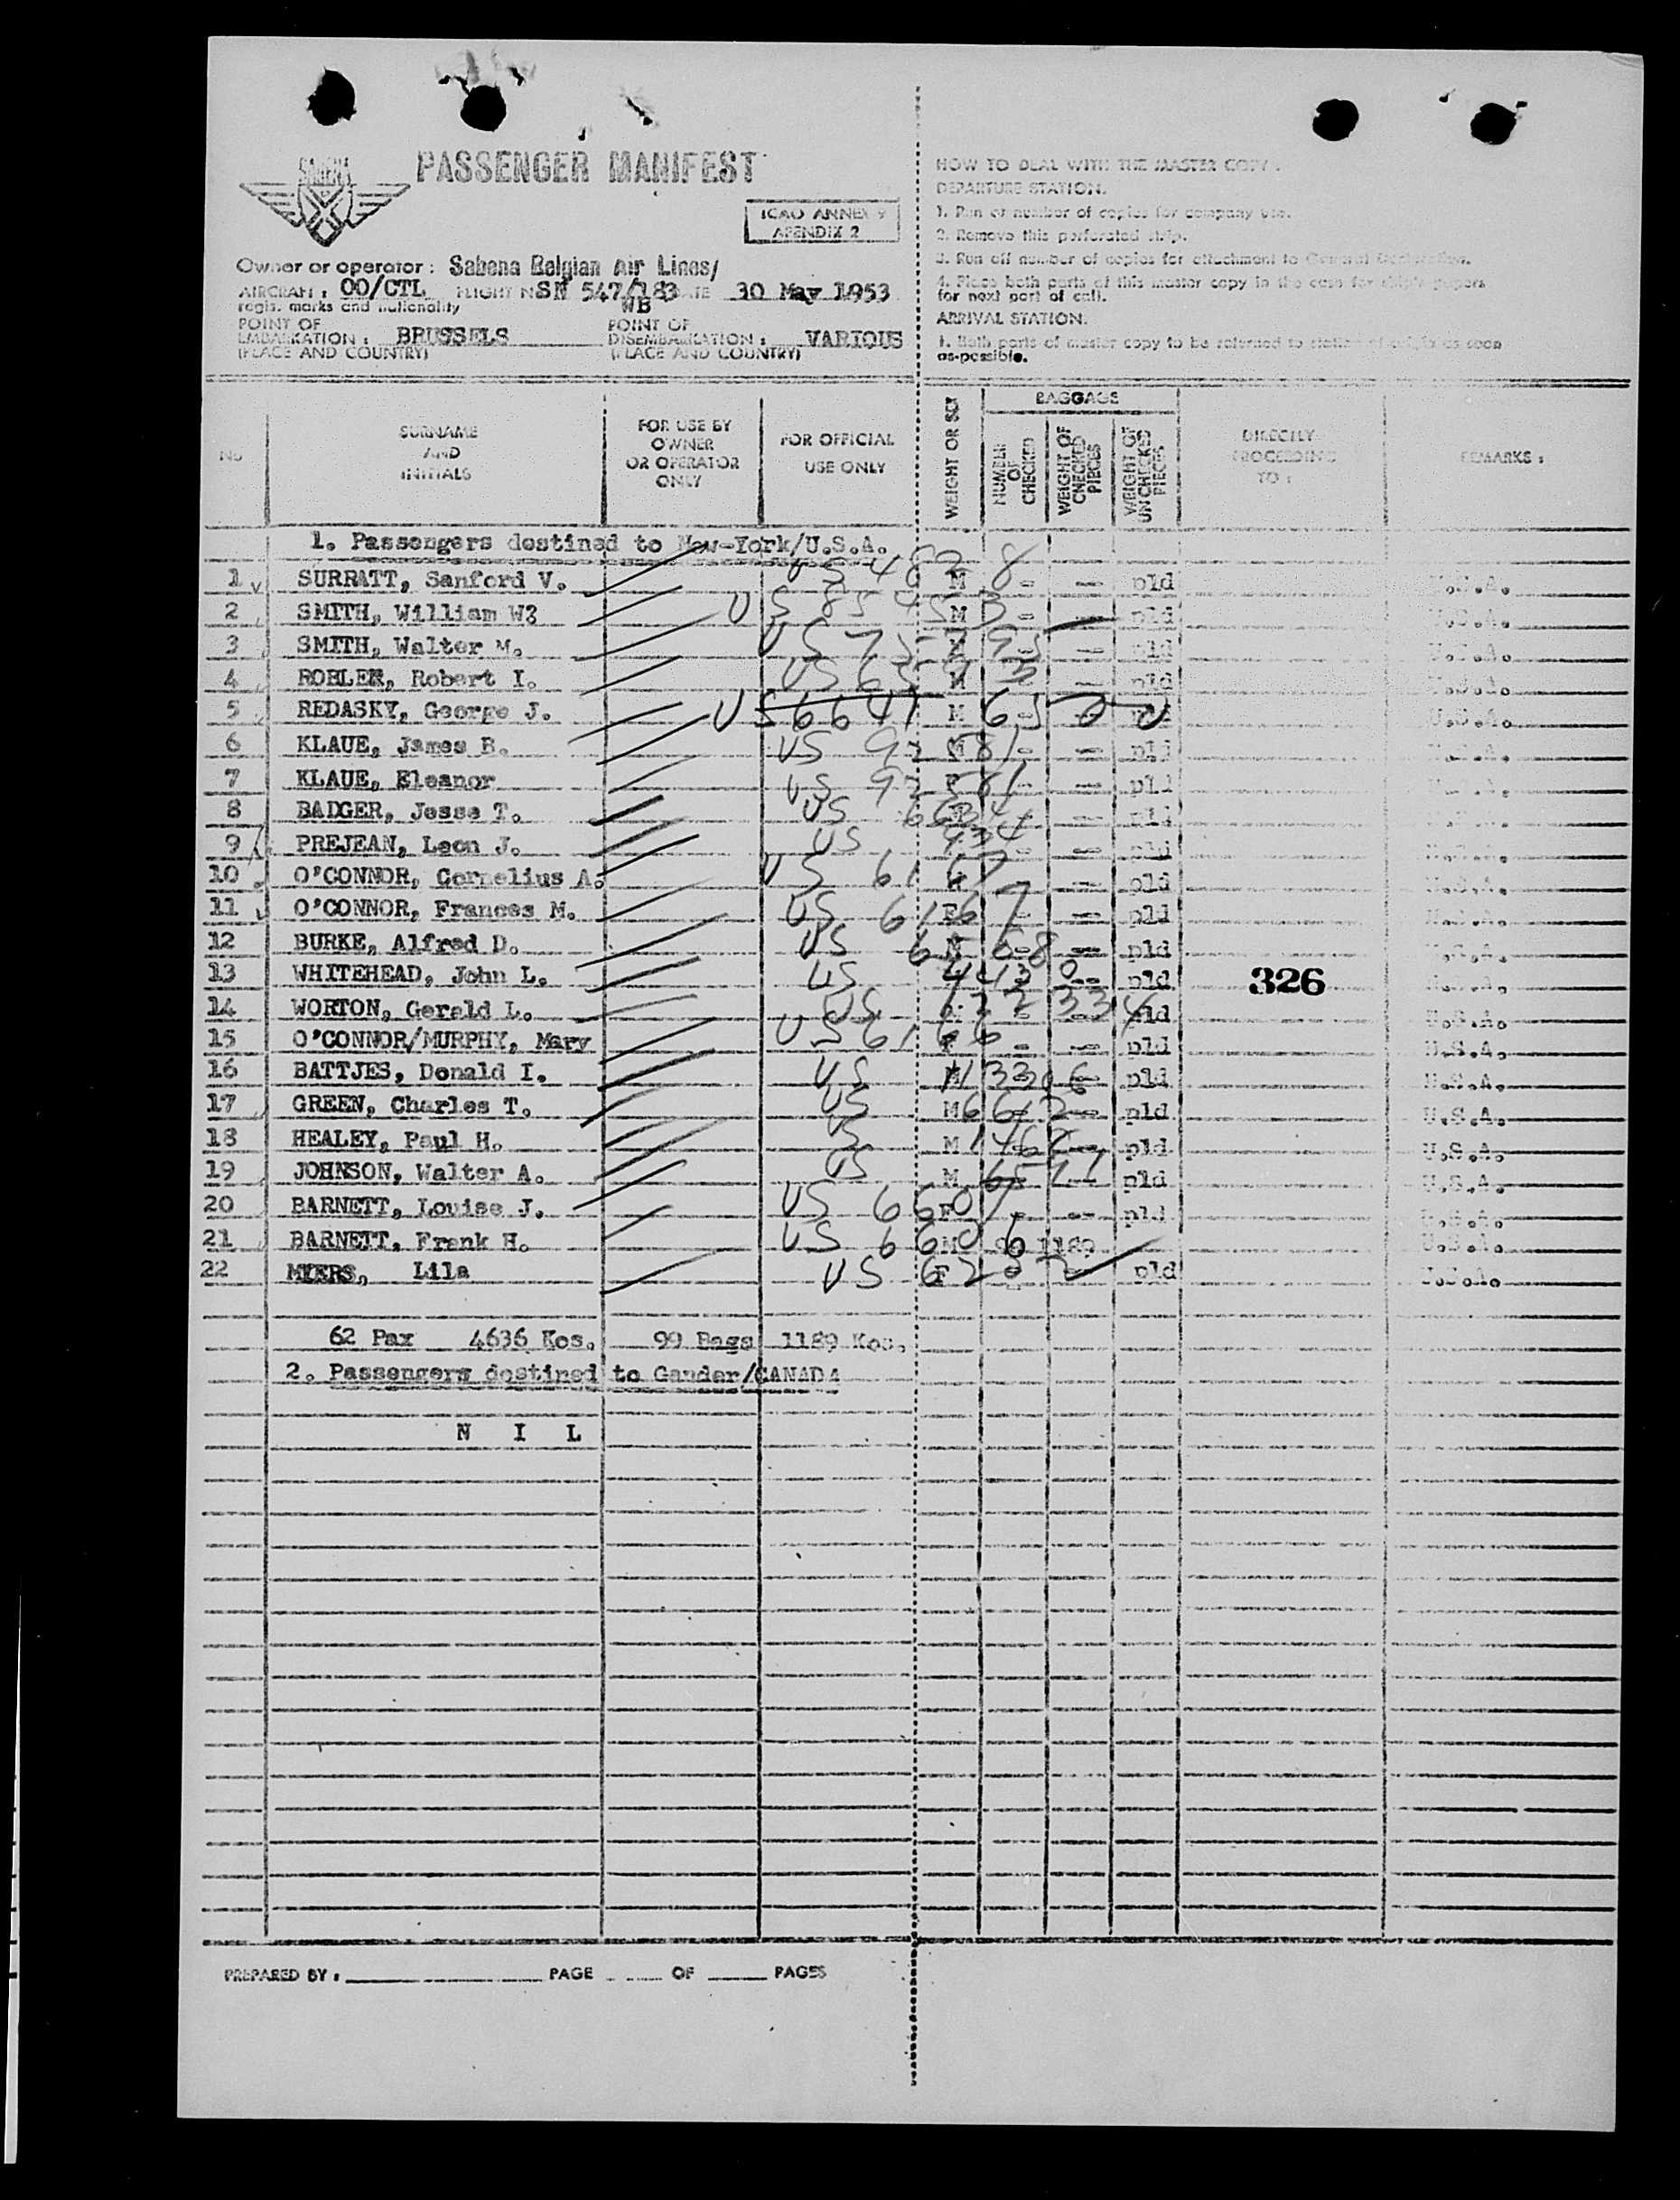 SABENA
PASSENGER MANIFEST
ICAO ANNEX 9
APENDIX 2
Owner or operator : Sabena Belgian Air Lines/
AIRCRAFT : OO/CTL FLIGHT No SN 547/183 DATE 30 May 1953
regis. marks and nationality WB
POINT OF EMBARKATION : BRUSSELS POINT OF DISEMBARKATION : VARIOUS
(PLACE AND COUNTRY) (PLACE AND COUNTRY)
HOW TO DEAL WITH THE MASTER COPY :
DEPARTURE STATION.
1. Run of number of copies for company use.
2. Remove this perforated strip.
3. Run off number of copies for attachment to General Declaration.
4. Place both parts of this master copy in the case for ship's papers
for next port of call.
ARRIVAL STATION.
1. Both parts of master copy to be returned to station of origin as soon
as possible.
No
SURNAME
AND
INITIALS
FOR USE BY
OWNER
OR OPERATOR
ONLY
FOR OFFICIAL
USE ONLY
WEIGHT OR SEX
BAGGAGE
NUMBER OF CHECKED
WEIGHT OF CHECKED PIECES
WEIGHT OF UNCHECKED PIECES
DIRECTLY
PROCEEDING
TO :
REMARKS :
1. Passengers destined to New-York/U.S.A.
1 SURRATT, Sanford V. US 4828 M - - pld U.S.A.
2 SMITH, William W? US 85453 M - - pld U.S.A.
3 SMITH, Walter M. US - pld U.S.A.
4 ROBLEE, Robert I. US M - pld U.S.A.
5 REDASKY, George J. US M - U.S.A.
6 KLAUE, James B. US 92581 M - - pld U.S.A.
7 KLAUE, Eleanor US 92581 F - - pld U.S.A.
8 BADGER, Jesse T. US 6634 - - pld U.S.A.
9 PREJEAN, Leon J. US 434 - - pld U.S.A.
10 O'CONNOR, Cornelius A. US 6167 - - pld U.S.A.
11 O'CONNOR, Frances M. US 6167 F - - pld U.S.A.
12 BURKE, Alfred D. US M - - pld U.S.A.
13 WHITEHEAD, John L. US 44130 - - pld U.S.A.
326
14 WORTON, Gerald L. US - - pld U.S.A.
15 O'CONNOR/MURPHY, Mary US 6166 F - - pld U.S.A.
16 BATTJES, Donald I. US M - - pld U.S.A.
17 GREEN, Charles T. US 6612 M - - pld U.S.A.
18 HEALEY, Paul H. US M - - pld U.S.A.
19 JOHNSON, Walter A. US M - - pld U.S.A.
20 BARNETT, Louise J. US 6607 F - - pld U.S.A.
21 BARNETT, Frank H. US 6606 M 99 1189 U.S.A.
22 MYERS, Lila US F - - pld U.S.A.
62 Pax 4636 Kos. 99 Bags 1189 Kos.
2. Passengers destined to Gander/CANADA
N I L
PREPARED BY : PAGE OF PAGES